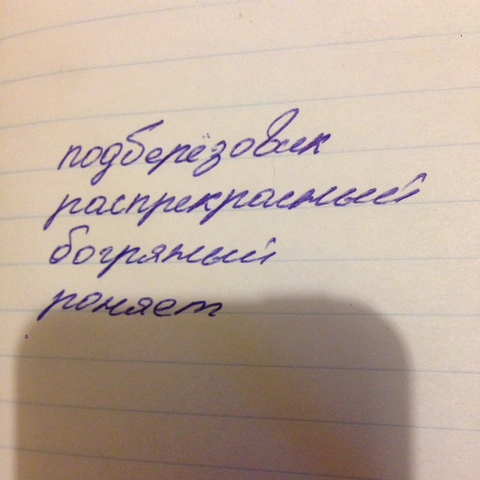 подберёзовик
распрекрасный
богряный
роняет